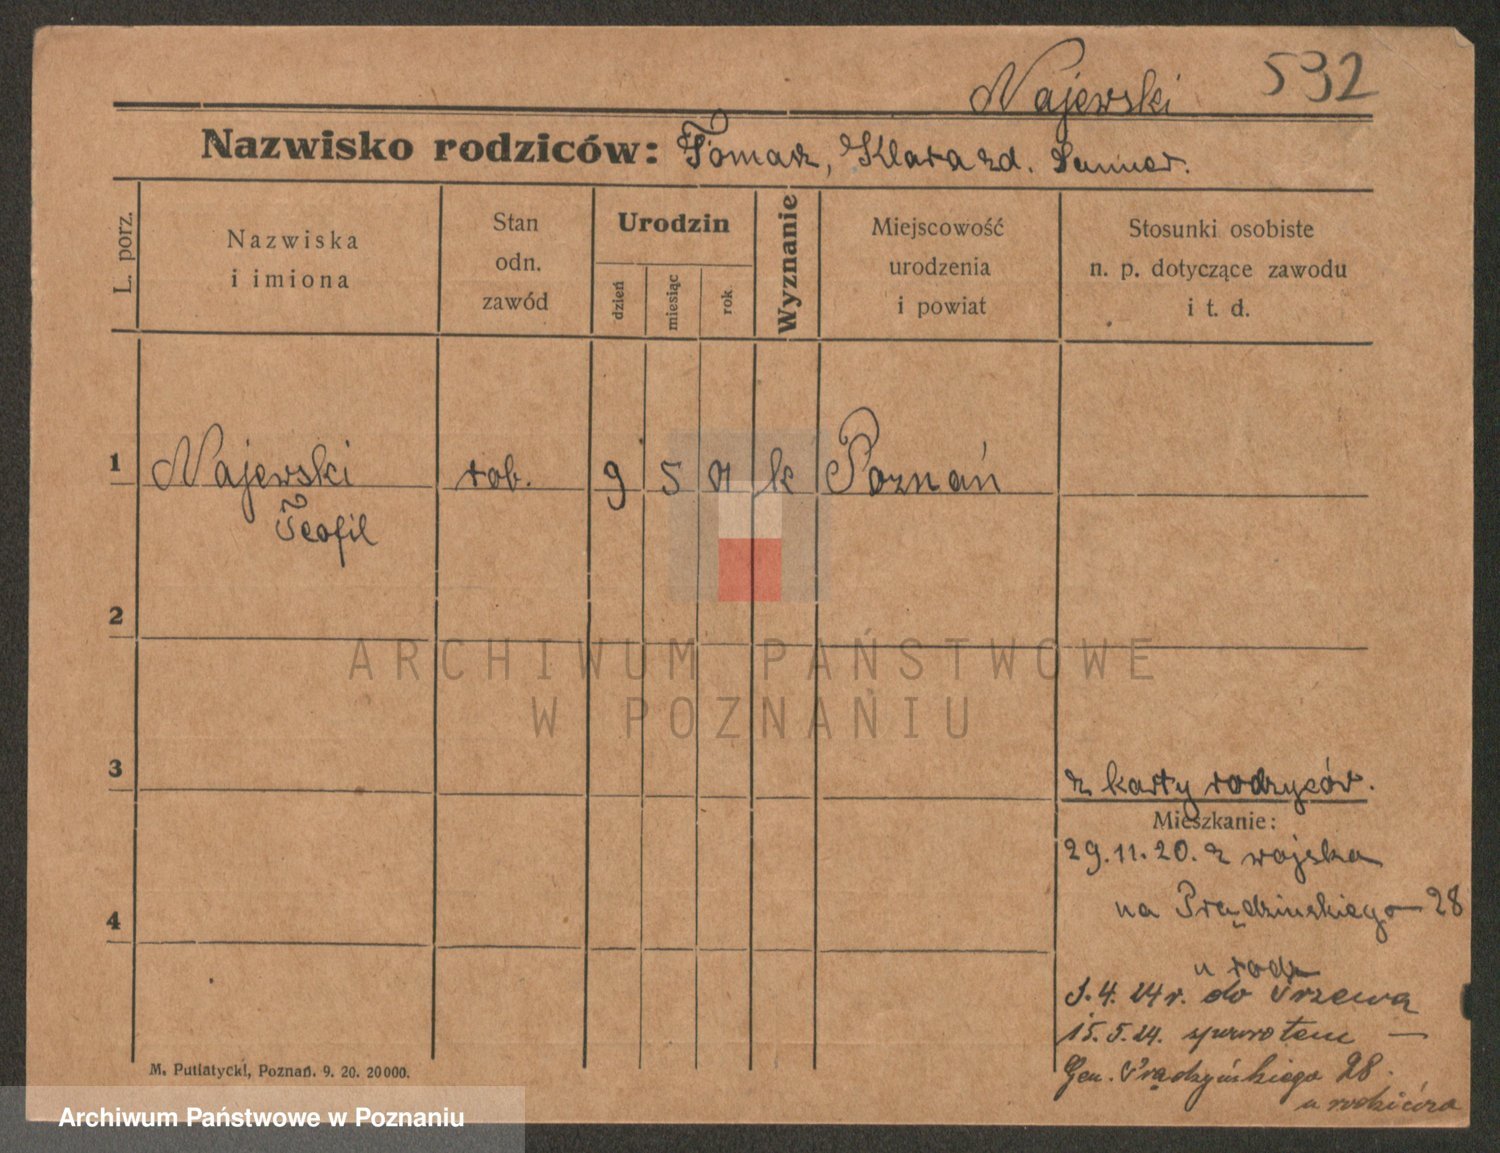 Najewski 532
Nazwisko rodziców: Tomasz, Klara zd.
L. porz.
Nazwiska
i imiona
Stan
odn.
zawód
Urodzin
dzień
miesiąc
rok
Wyznanie
Miejscowość
urodzenia
i powiat
Stosunki osobiste
n. p. dotyczące zawodu
i t. d.
1 Najewski rob. 9 5 k Poznań
Teofil
2
3
z karty rodzyców.
Mieszkanie:
29.11.20. z wojska
4
na Prądzinskiego 28
u rodz
3.4.24r. do
15.5.24. spowrotem —
Gen. Prądzyńskiego 28.
u rodziców
M. Putiatycki, Poznań. 9. 20. 20000.
ARCHIWUM PAŃSTWOWE
W POZNANIU
Archiwum Państwowe w Poznaniu